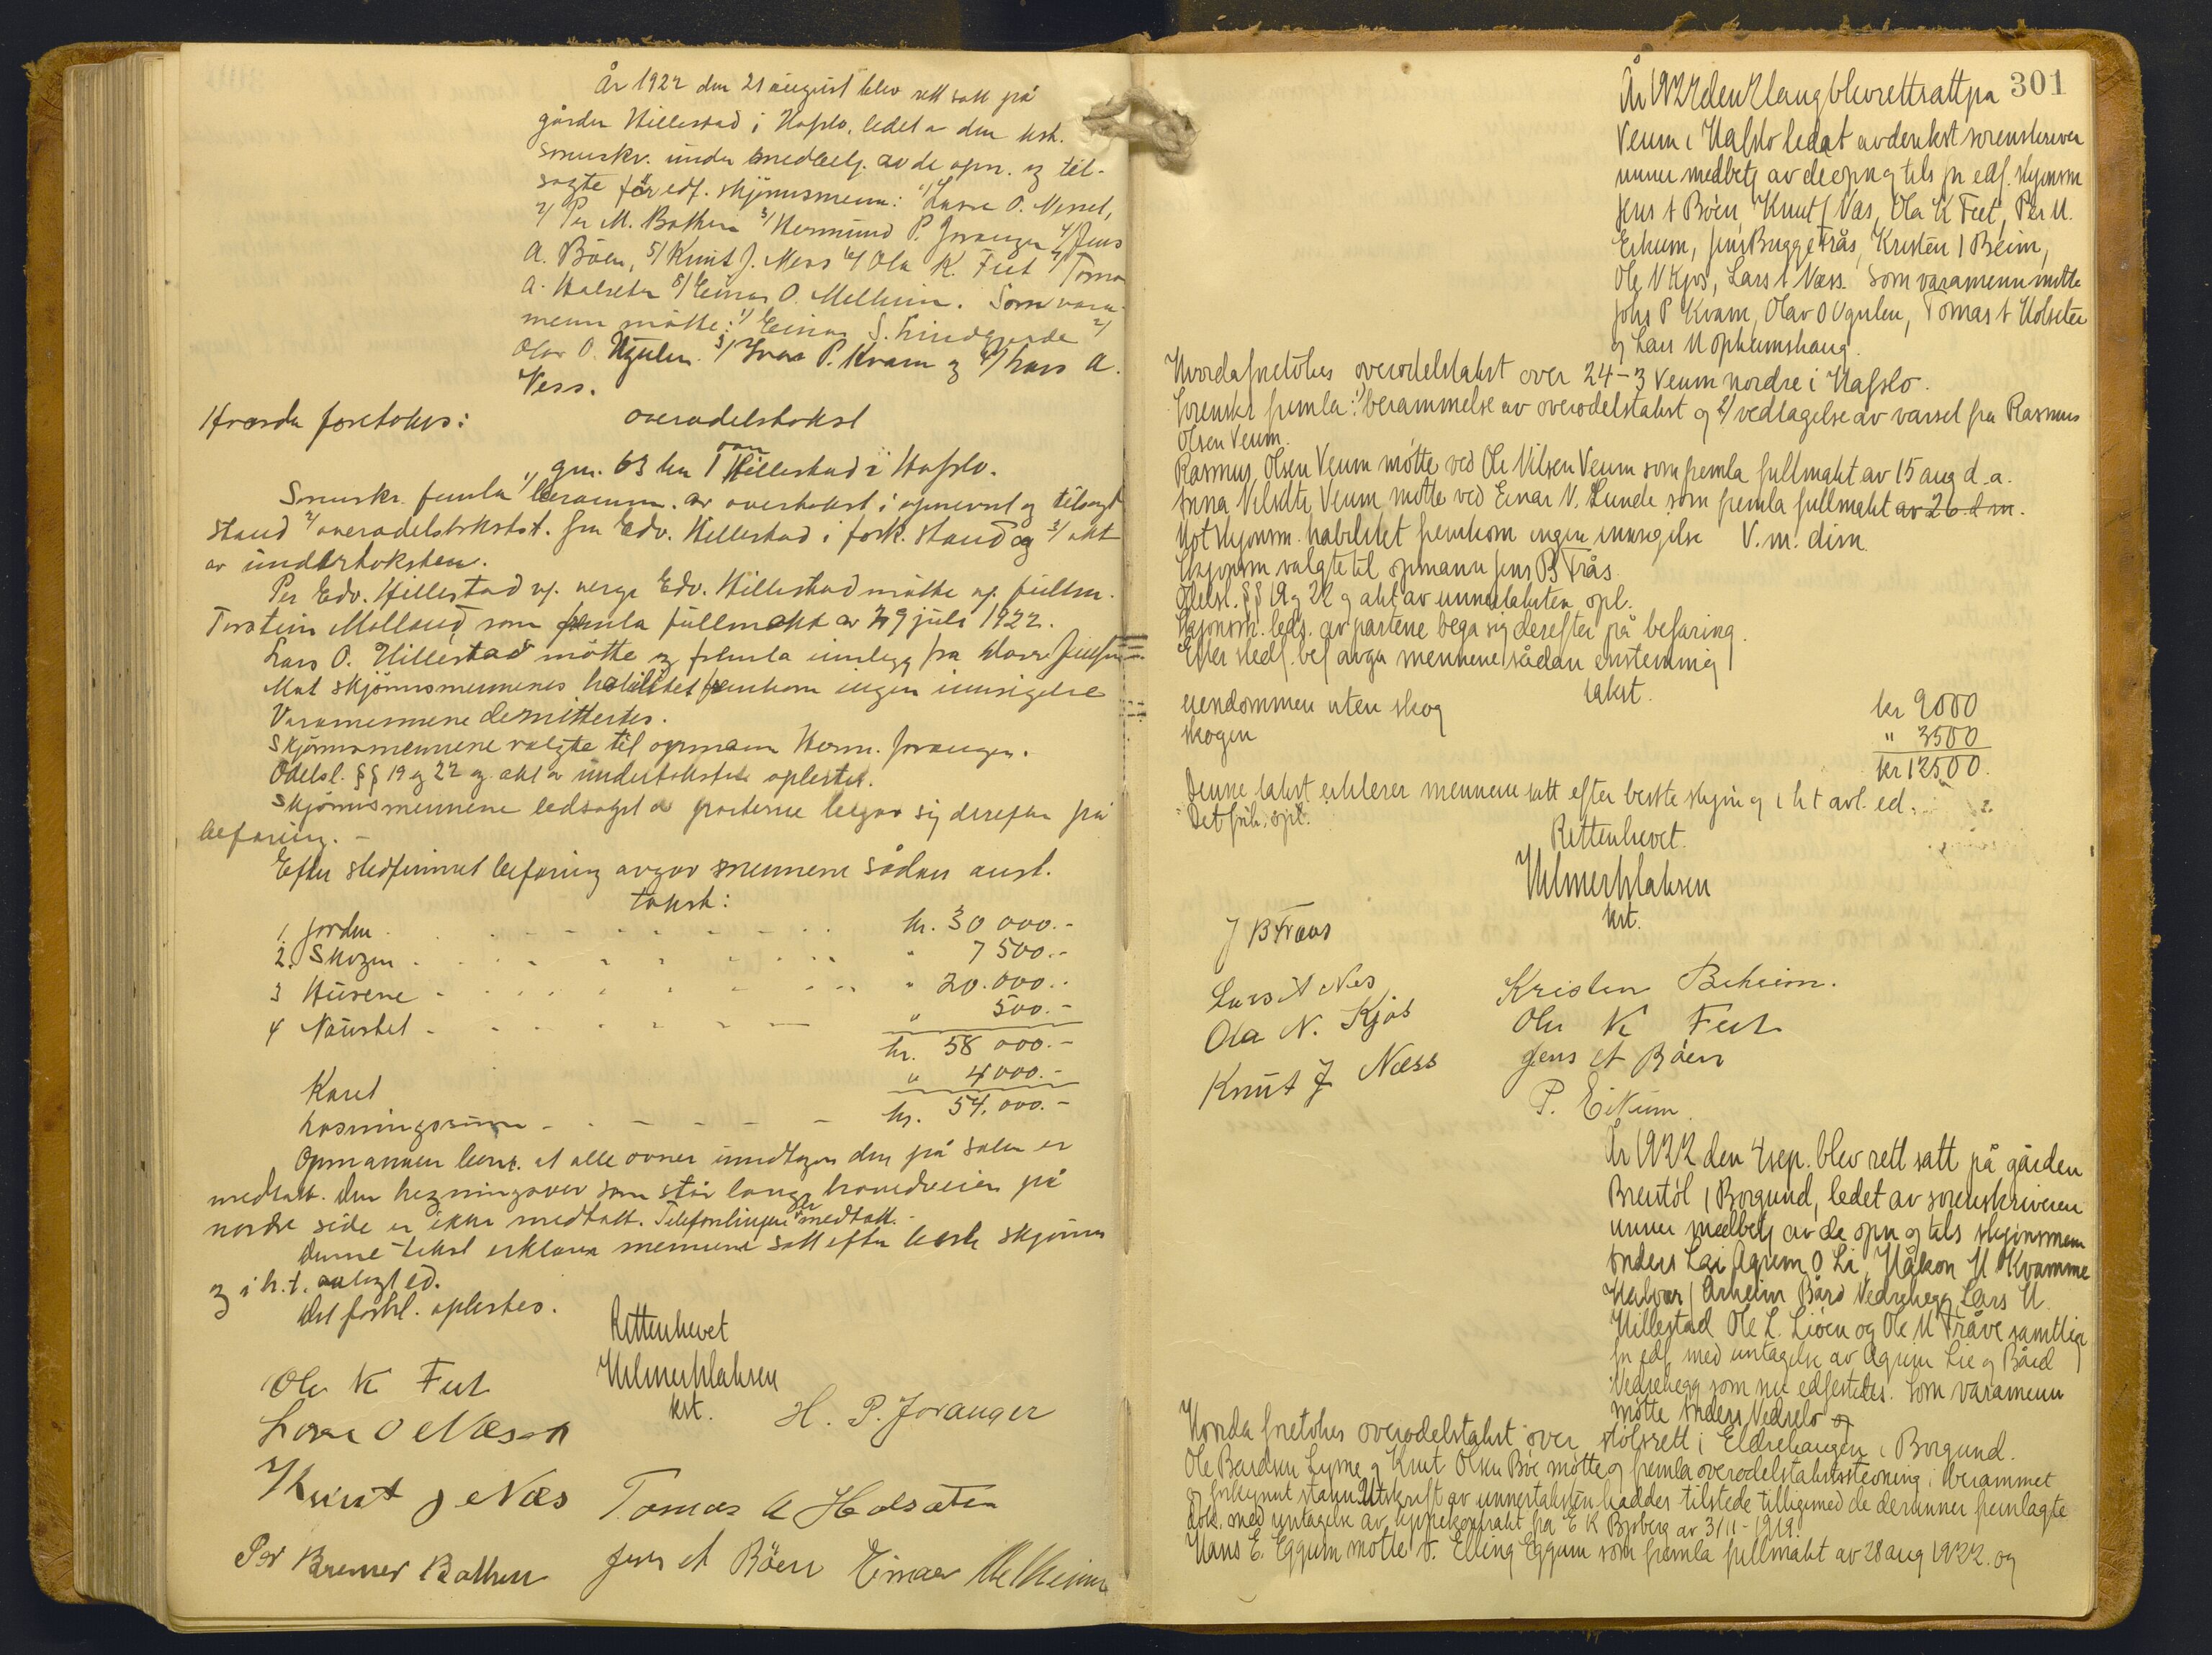 År 1922 den 21 august blev rett satt på
gården Hillestad i Hafslo, ledet av den kst.
sorenskr. under medbetj. av de opn. og til-
sagte før edf. skjönnsmenn: 1/ Lasse O. Nesset,
2/ Per M. Bathen 3/ Hermund P. Joranger 4/ Jens
A. Böen, 5/ Knut J. Ness 6/ Ola K. Feet 7/ Tomas
A. Halseten 8/ Einar O. Melheim. Som vara-
menn mötte: 1/ Einar S. Lindegaarde 2/
Olav O. Ugulen 3/ Ivar P. Kvam og 4/ Lars A.
Ness.
Hvorda foretokes: overodelstakst
over
gnr. 63 bnr 1 Hillestad i Hafslo.
Sorenskr. fremla 1/ beramm. av overtakst i opnevnt og tilsagt
stand 2/ overodelstakstst. fra Edv. Hillestad i fork. stand og 3/ akt
av undertaksten.
Per Edv. Hillestad v. verge Edv. Hillestad mötte v. fullm.
Torstein Molland, som fremla fullmakt av 29 juli 1922.
Lars O. Hillestad mötte og fremla innlegg fra
Mot skjönnsmennenes habilitet fremkom ingen innsigelse
Varamennene demittertes.
Skjönnsmennene valgte til opmann Herm. Joranger.
Odelsl. §§ 19 og 22 og akt av undertaksten oplestes.
Skjönnsmennene ledsaget av parterne begav sig derefter på
befaring. -
Efter stedfunnet befaring avgav mennene sådan enst.
takst:
1. Jorden . . . . . kr. 30 000.-
2. Skogen . . . . . " 7 500.-
3 Husene . . . . . " 20.000.-
4 Naustet . . . . . " 500.-
kr. 58 000.-
Karet " 4 000.-
Losningssum - - - - - kr. 54.000.-
Opmannen bem. at alle ovner inndtagen den på salen er
medtatt. Den hegningsover som står langs hovedveien på
nordre side er ikke medtatt. Telefonlinjen er medtatt. -
Denne takst erklærer mennene satt efter beste skjönn
og i h. t. avlagt ed.
Det forhl. oplestes.
Rettenhevet
Hilmer Klaksen
kst.
Ole K Feet
H. P. Joranger
Lasse O Ness
Knut J Næs Tomas A Halseten
Per Bremer Bathen Jens A Böen Einar Melheim
301
År 1922 den 21 aug blev rett satt på
Veum i Hafslo ledet av den kst sorenskriver
unner medbetj av de opn og tils fr edf. skjonsm
Jens A Böen, Knut J Næs, Ola K Feet, Per M.
Eikum, Jens Bugge Frås, Kristen J Beim,
Ole N Kjos, Lars A Næss. Som varamenn mötte
Johs P Kvam, Olav O Ugulen, Tomas A Holseter
og Lars M Opheimshaug.
Hvorda foretokes overodelstakst over 24-3 Veum nordre i Hafslo.
Sorenskr fremla: 1/ berammelse av overodelstakst og 2/ vedtagelse av varsel fra Rasmus
Olsen Veum.
Rasmus Olsen Veum mötte ved Ole Nilsen Veum som fremla fullmakt av 15 aug d. a.
Anna Nilsdtr Veum mötte ved Einar N. Lunde som fremla fullmakt av 26 d m.
Mot skjonsm. habilitet fremkom ingen innsigelse V. m. dim.
Skjonsm valgte til opmann Jens B Frås.
Odelsl. §§ 19 og 22 og akt av unnertaksten opl.
Skjonsm. leds. av partene bega sig derefter på befaring.
Etter stedf. bef avga mennene sådan enstemmig
takst.
eiendommen uten skog kr 9000
skogen " 3500
kr 12500.
Denne takst erklerer mennene satt efter beste skjön og i h t avl. ed.
Det forh. opl.
Rettenhevet.
Hilmer Klaksen
kst.
J B Fraas
Lars A Nes Kristen Beheim.
Ola N. Kjos Ole K Feet
Knut J Næss Jens A Böen
P. Eikum.
År 1922 den 4 sep. blev rett satt på gården
Breistöl i Borgund, ledet av sorenskriveren
unner medbetj av de opn og tils skjönsmenn
Anders Lai Agrim O Li, Håkon M Kvamme
Halvor J Årheim Bård Vedrehegg, Lars M
Hillestad Ole L. Lioen og Ole M Tråve samtlige
fr edf med untagelse av Agrim Lie og Bård
Vedrehegg som nu edfestedes. Som varamenn
mötte Anders Nedrelo og
Hvorda foretokes overodelstakst over stölsrett i Eldrehaugen i Borgund.
Ole Bardsen Lyme og Knut Olsen Böe mötte og fremla overodelstakststevning i berammet
og forkynnt stann. Utskrift av unnertaksten haddes tilstede tilligemed de derunner fremlagte
dok. med untagelse av kjøpekontrakt fra E K Bjoberg av 3/11-1919.
Hans E. Eggum mötte v. Elling Eggum som fremla fullmakt av 28 aug 1922. og